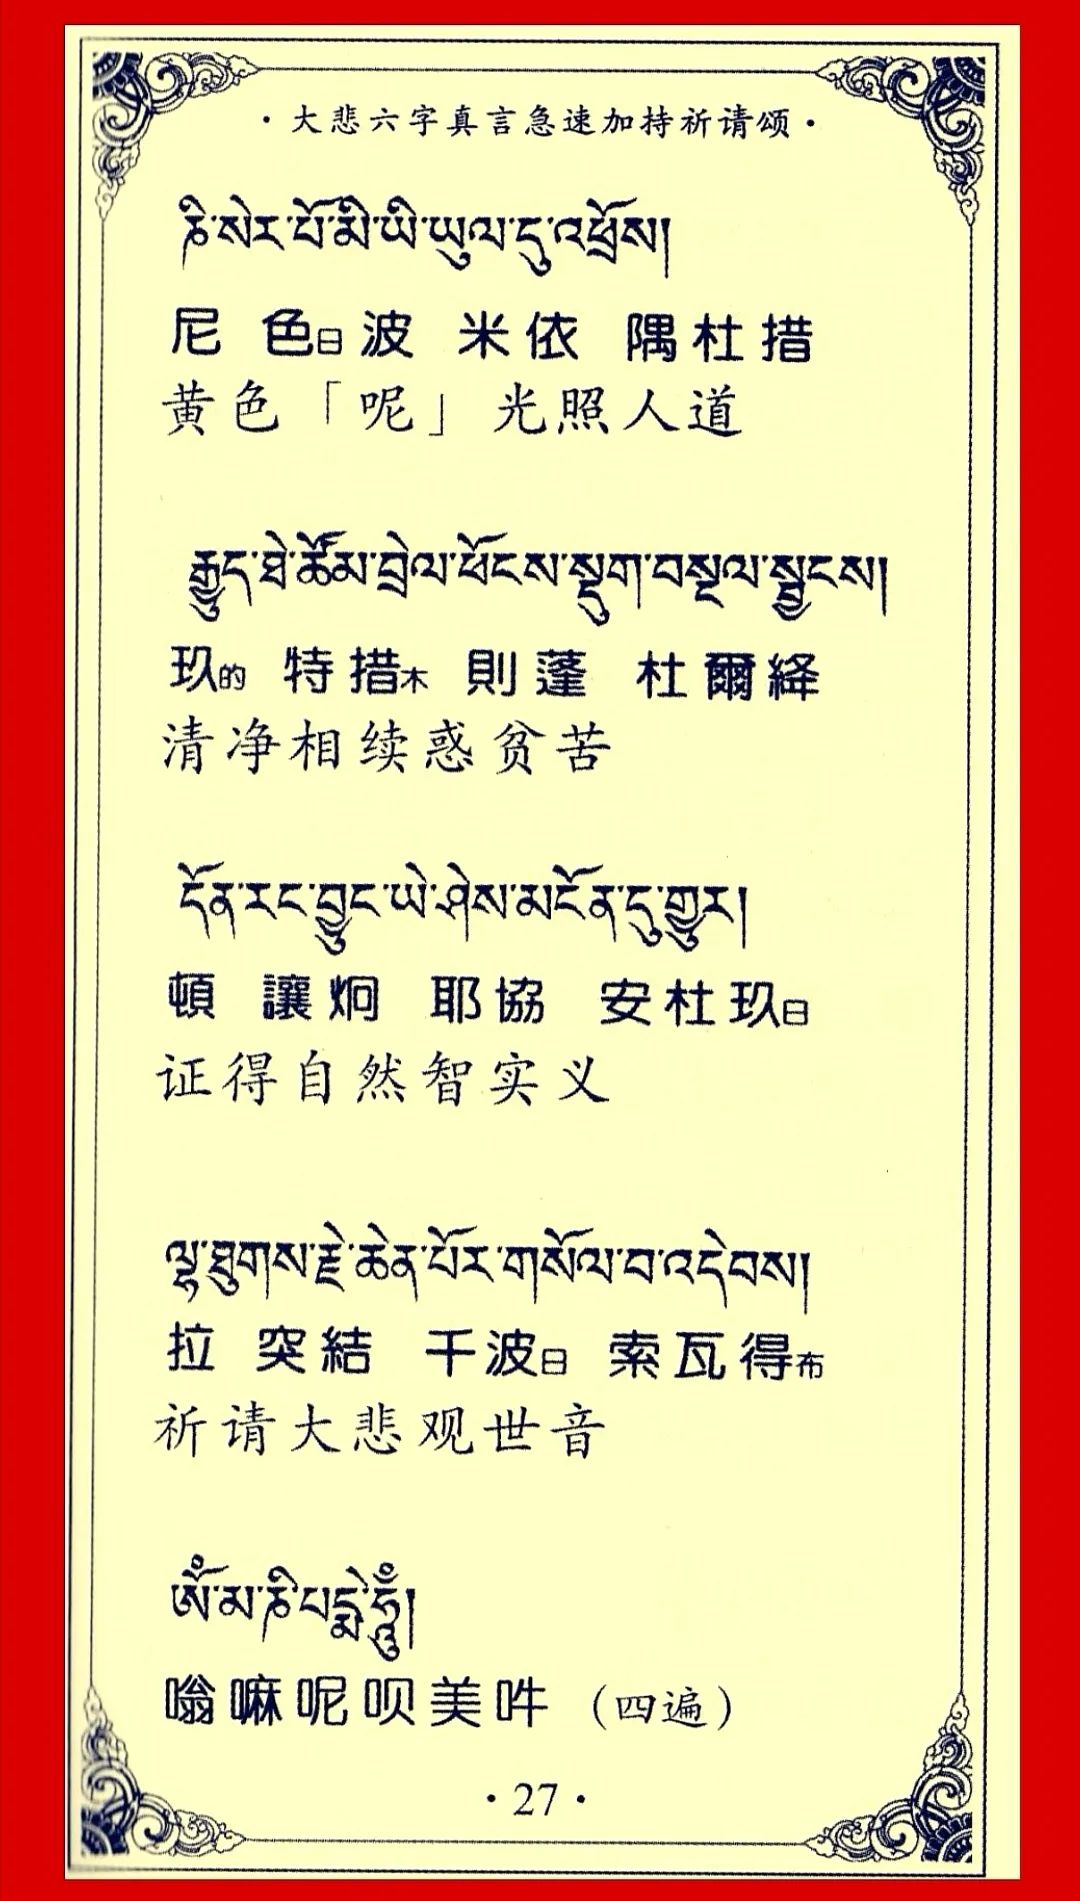 ·大悲六字真言急速加持祈请颂·
ཎི་སེར་པོ་མི་ཡི་ཡུལ་དུ་འཕྲོས།
尼 色日波 米依 隅杜措
黄色「呢」光照人道
རྒྱུད་ཐེ་ཚོམ་བྲེལ་ཕོངས་སྡུག་བསྔལ་སྦྱངས།
玖的 特措木 則蓬 杜爾絳
清净相续惑贫苦
དོན་རང་བྱུང་ཡེ་ཤེས་མངོན་དུ་གྱུར།
頓 讓炯 耶協 安杜玖日
证得自然智实义
ལྷ་ཐུགས་རྗེ་ཆེན་པོར་གསོལ་བ་འདེབས།
拉 突結 千波日 索瓦得布
祈请大悲观世音
ཨོཾ་མ་ཎི་པདྨེ་ཧཱུྃ།
嗡嘛呢呗美吽（四遍）
·27·